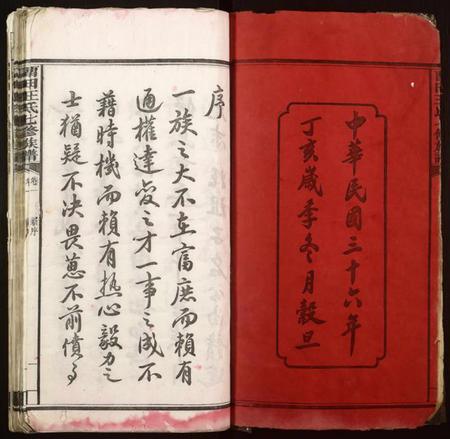 中華民國三十六年
丁亥歲季冬月穀旦
序
一族之大不在富庶而賴有
通權達變之才一事之成不
藉時機而賴有热心毅力之
士猶疑不决畏葸不前債事
田汪氏七修族譜
卷一
序